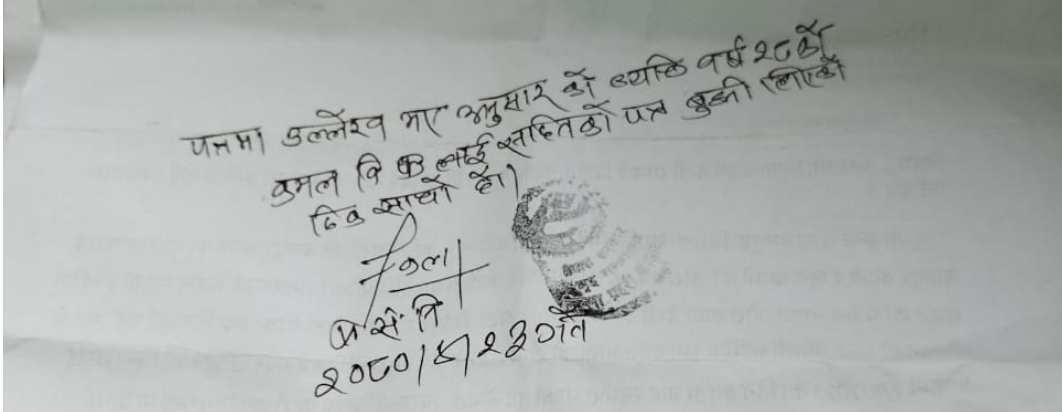 पत्रमा उल्लेख भए अनुसार को व्यक्ति वर्ष २८ को
कमल वि क लाई सहितको पत्र बुझी लिएको
ठिक साचो हो।
कला
प्र से नि
२०८०।५।२३ गते